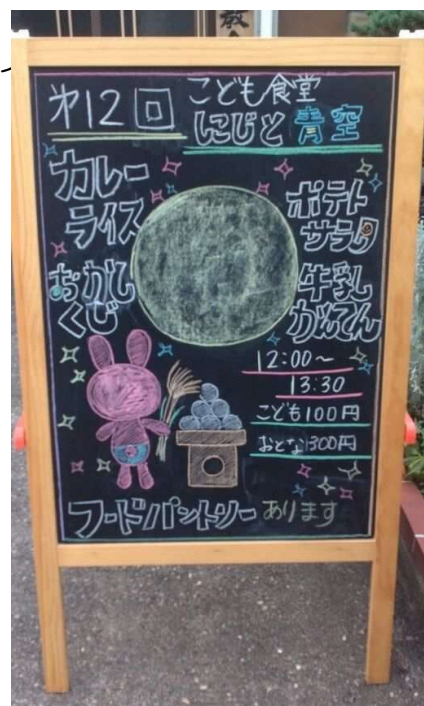 第12回
こども食堂
にじと青空
カレー
ライス
ポテト
サラダ
おかし
くじ
牛乳
かんてん
12:00〜
13:30
こども100円
おとな300円
フードパントリーあります